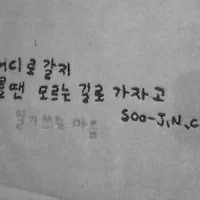 어디로 갈지
를땐 모르는 길로 가자고
일기 쓰는 마음 SOO-J,N,C